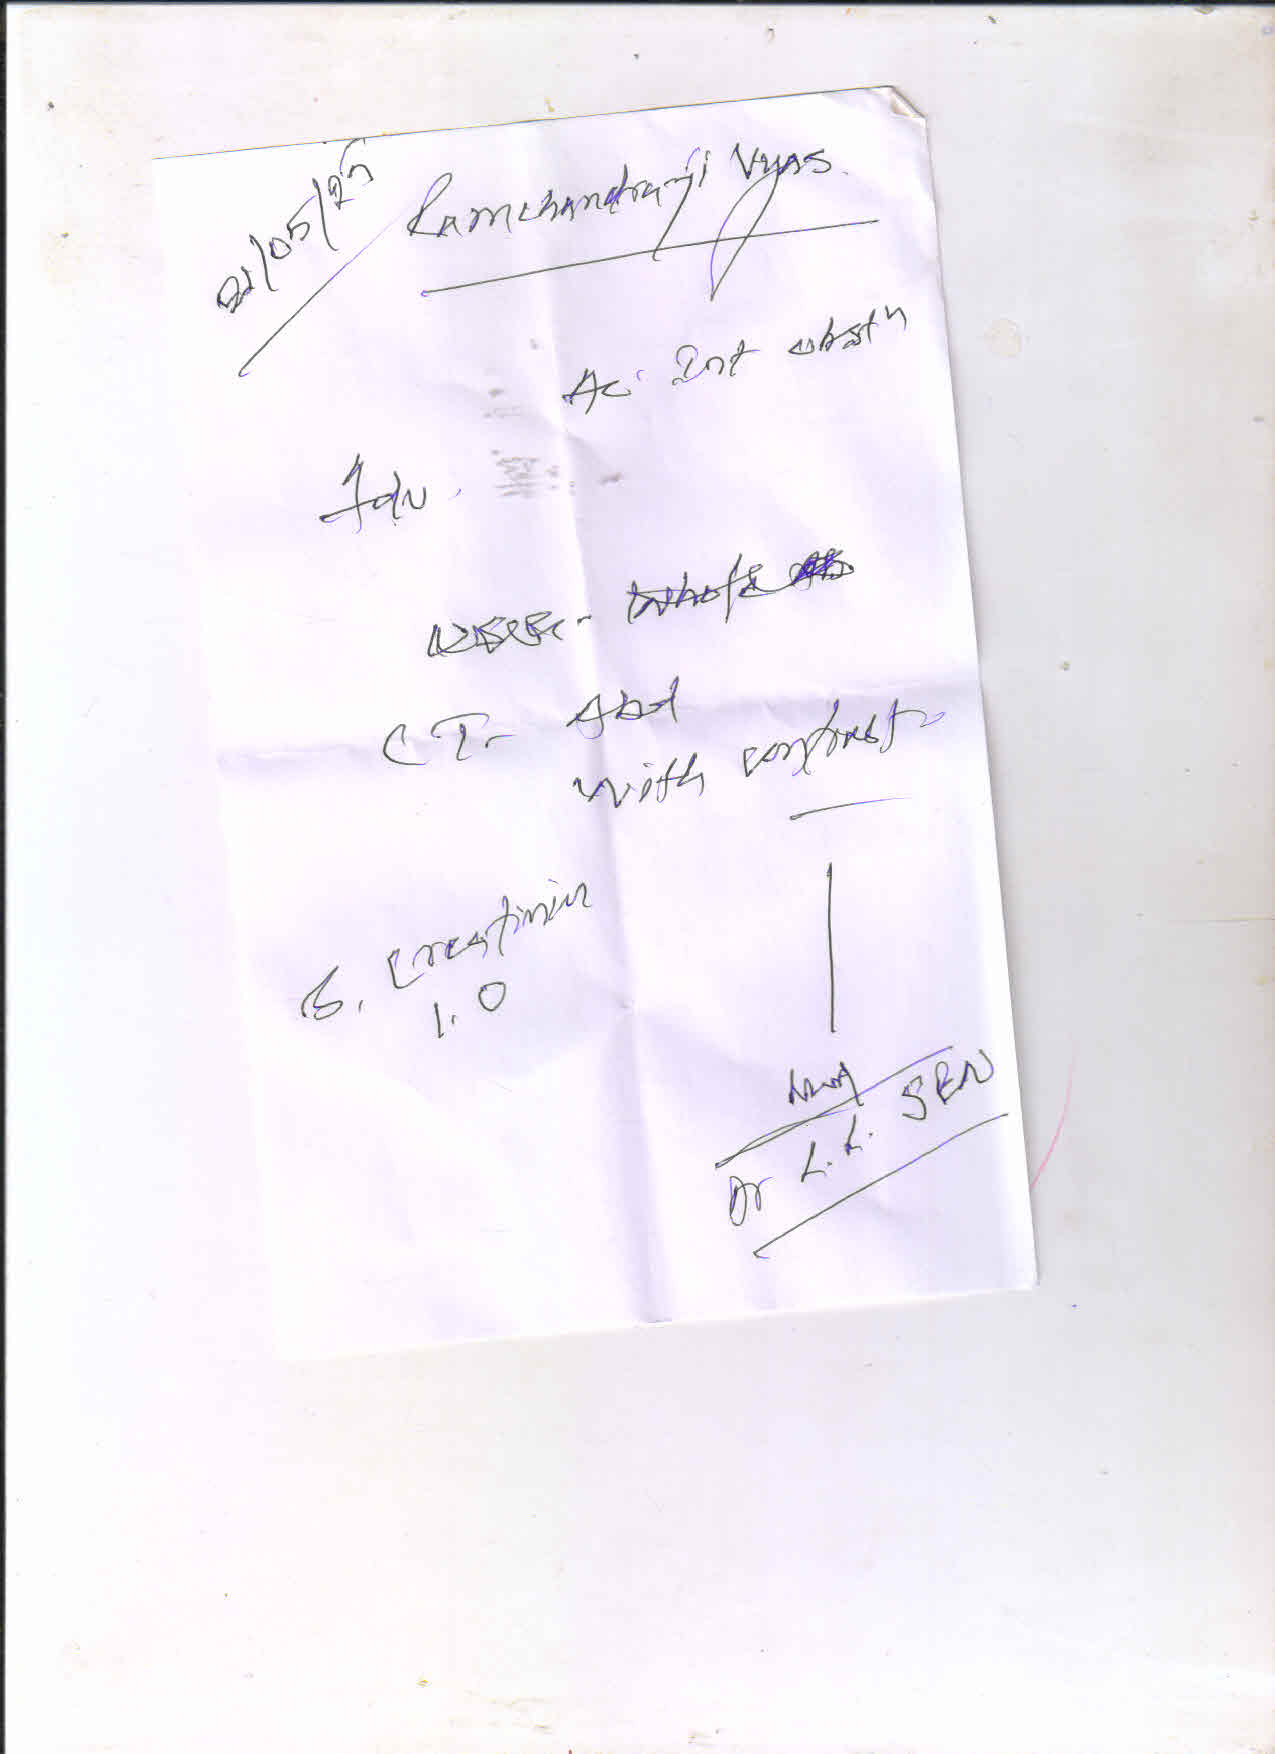 Ramchandraji Vyas.
Ac. Int obstn
Adv.
CT- Abd
with contrast
S. Creatinin
1.0
Dr L.L. SEN